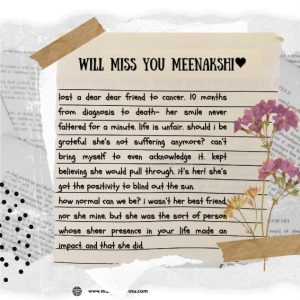 WILL MISS YOU MEENAKSHI♥
lost a dear dear friend to cancer. 10 months
from diagnosis to death- her smile never
faltered for a minute. life is unfair. should i be
grateful she's not suffering anymore? can't
bring myself to even acknowledge it. kept
believing she would pull through. it's her! she's
got the positivity to blind out the sun.
how normal can we be? i wasn't her best friend,
nor she mine. but she was the sort of person
whose sheer presence in your life made an
impact. and that she did.